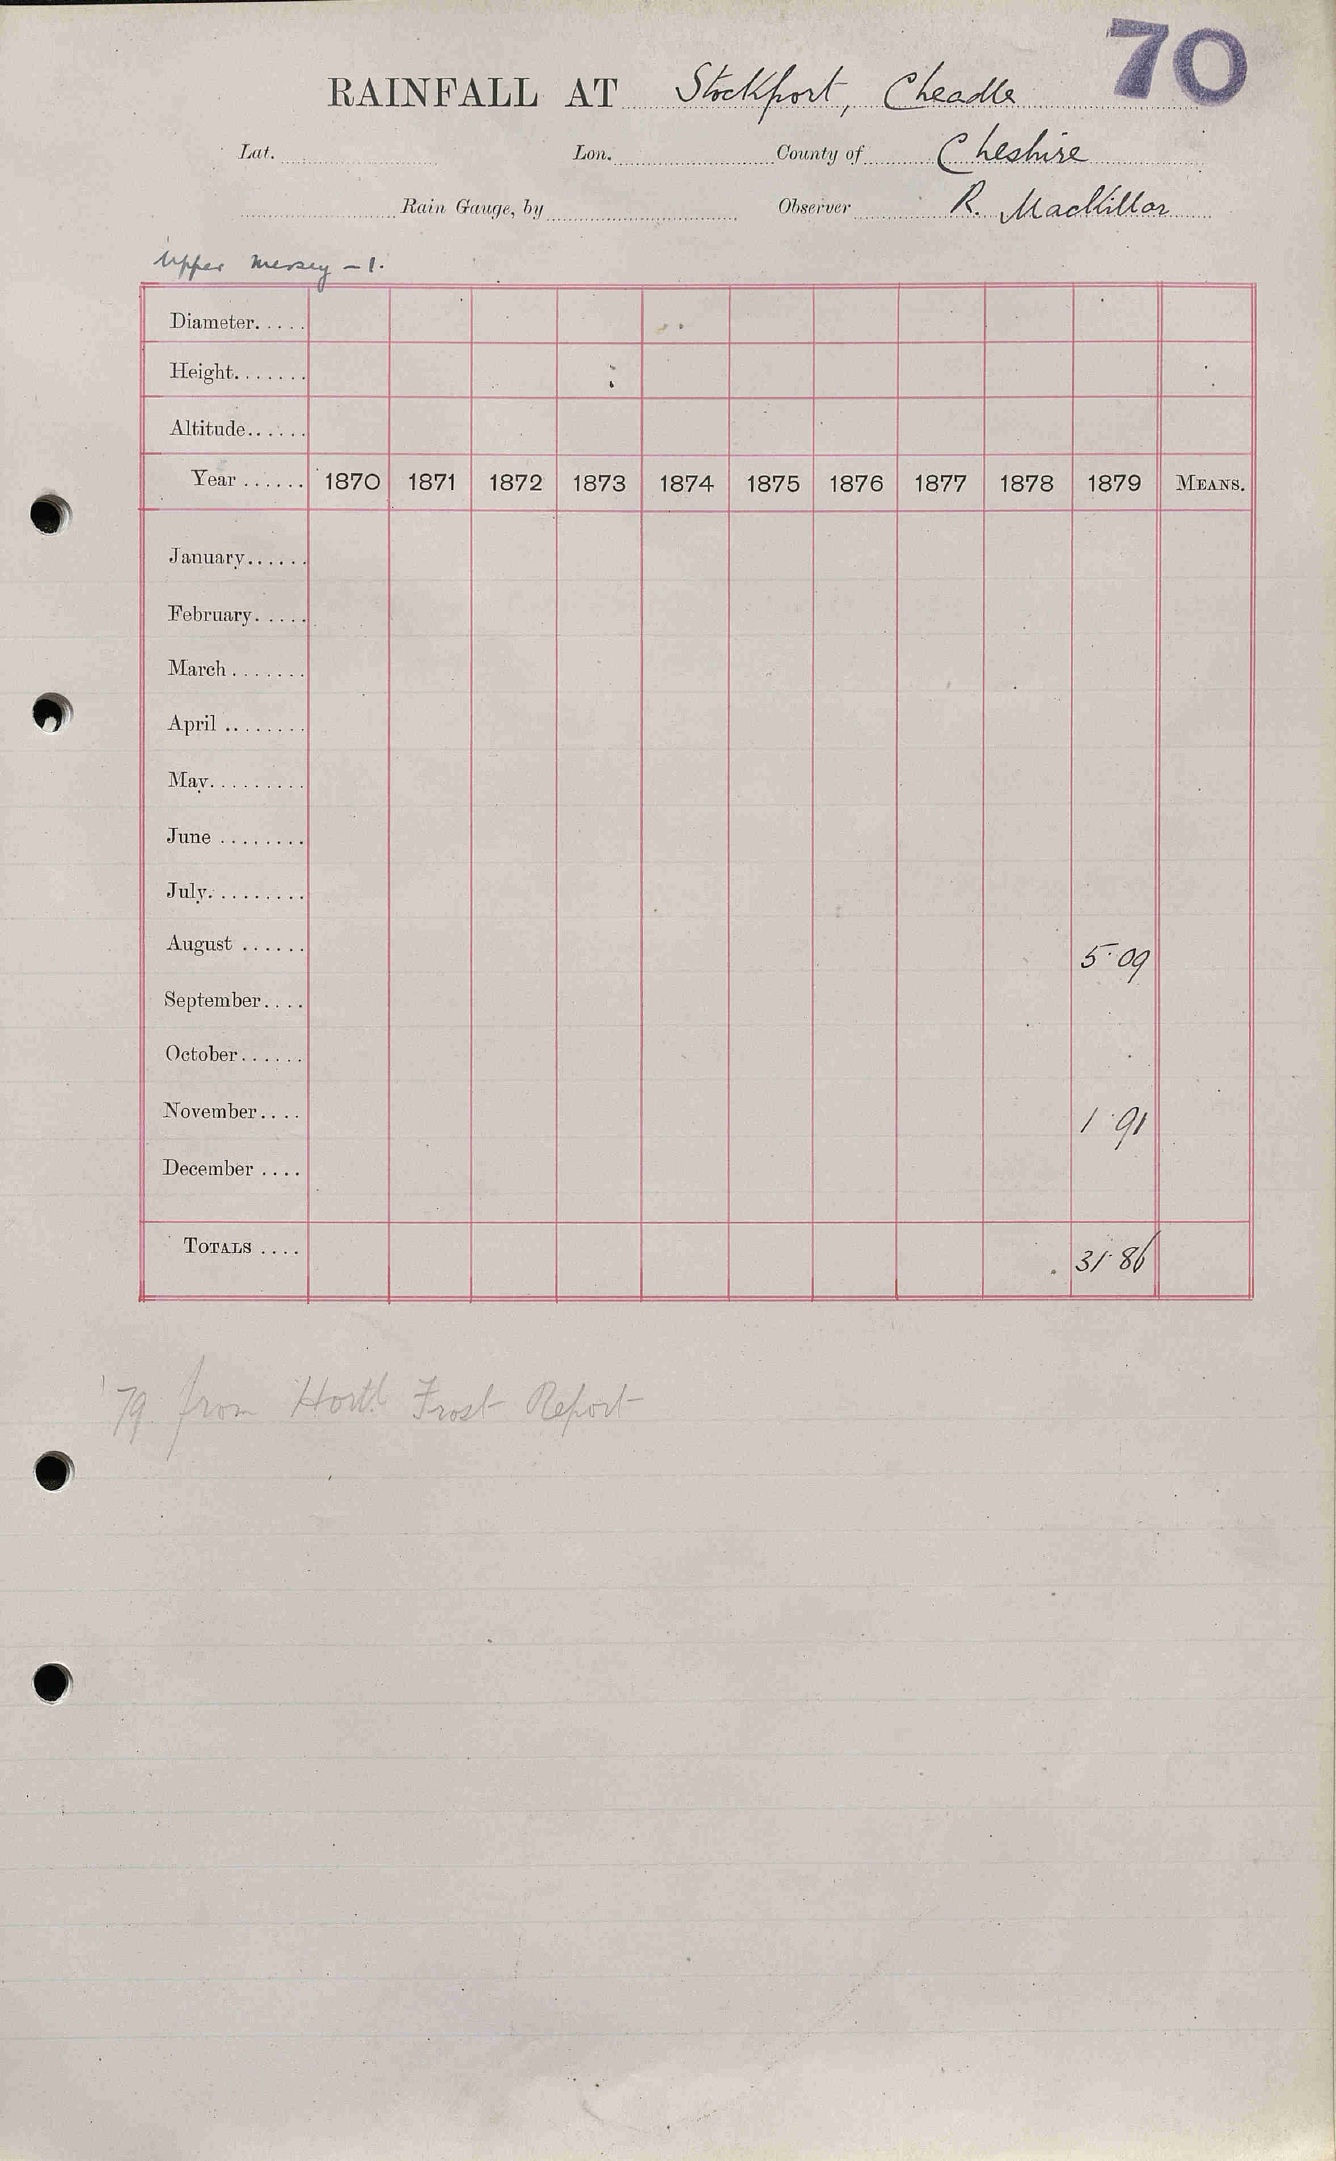 70
RAINFALL AT Stockport, Cheadle
Lat. Lon. County of Cheshire
Rain Gauge, by Observer R. MacKillor
Upper Mersey - 1.
Diameter.....
Height.......
Altitude......
Year ...... 1870 1871 1872 1873 1874 1875 1876 1877 1878 1879 MEANS.
January......
February.....
March .......
April ........
May.........
June ........
July.........
August ...... 5.09
September....
October......
November.... 1.91
December ....
TOTALS .... 31.86
'79 from Hortl Frost Report